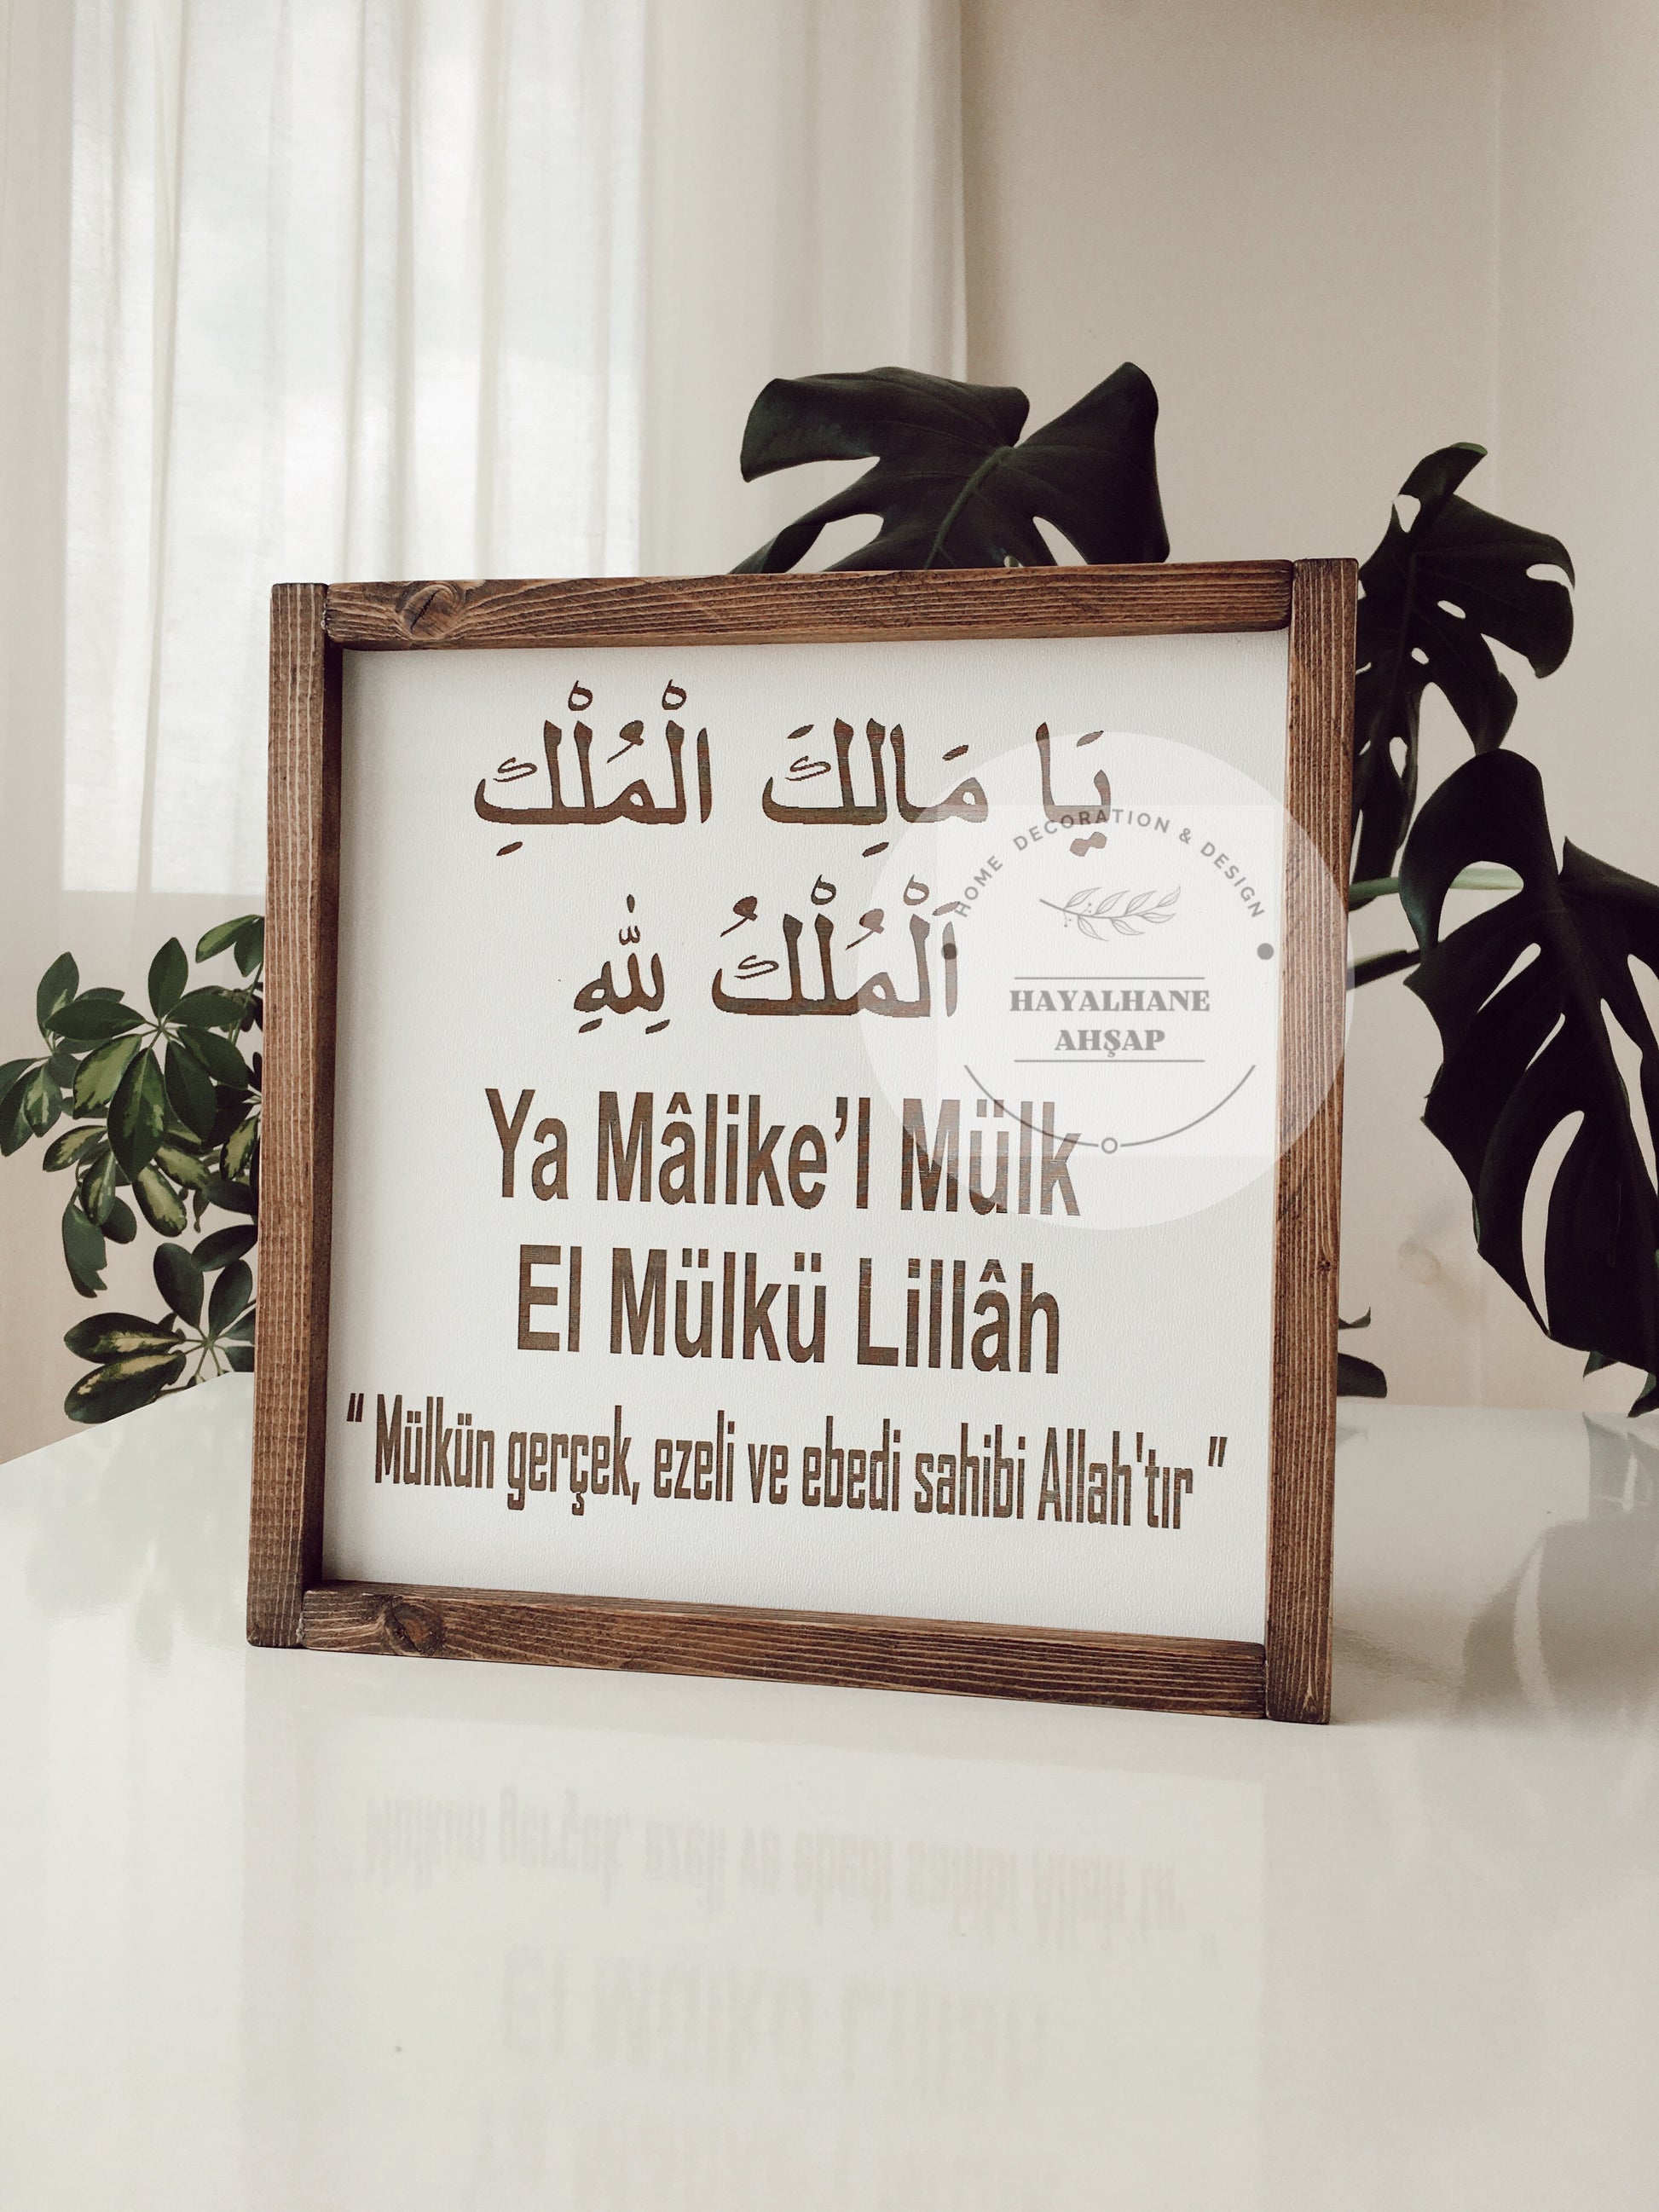 يَا مَالِكَ الْمُلْكِ
اَلْمُلْكُ لِلّٰهِ
Ya Mâlike’l Mülk
El Mülkü Lillâh
“ Mülkün gerçek, ezeli ve ebedi sahibi Allah'tır ”
HOME DECORATION & DESIGN
HAYALHANE
AHŞAP